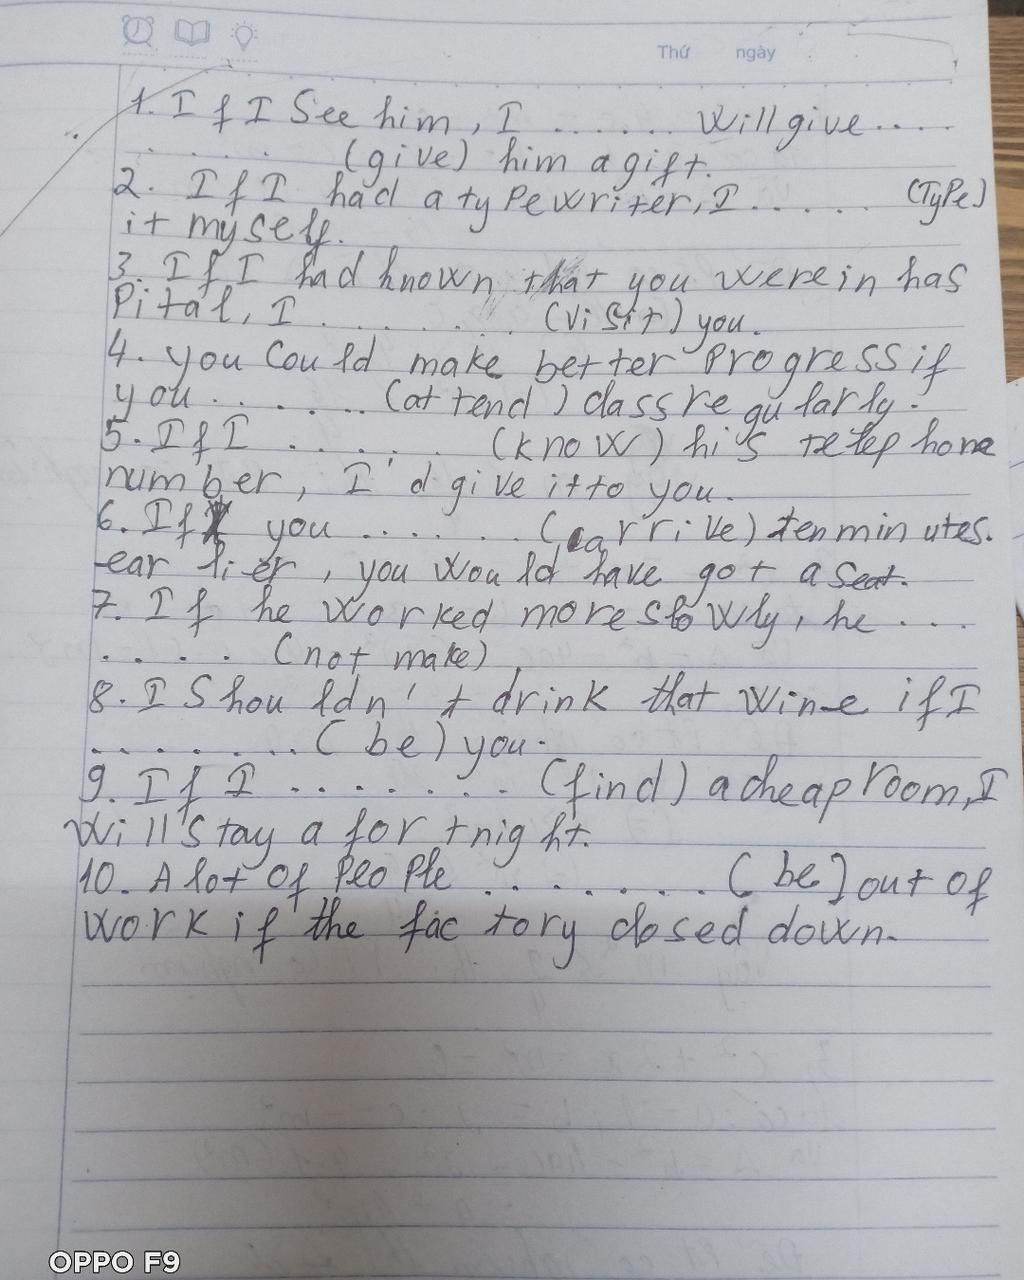 Thứ ngày
1. If I See him, I ...... will give ....
...... (give) him a gift.
2. If I had a typewriter, I ...... (Type)
it myself.
3. If I had known that you were in has
Pital, I ........ (visit) you.
4. you Could make better Progress if
you ....... (attend) class regularly.
5. If I ...... (know) his telephone
number, I'd give it to you.
6. If you ....... (arrive) ten minutes.
earlier, you would have got a seat.
7. If he worked more slowly, he ...
..... (not make)
8. I Shouldn't drink that wine if I
........ (be) you.
9. If I ........ (find) a cheap room, I
will stay a fortnight.
10. A lot of People ........ (be] out of
work if the factory closed down.
OPPO F9